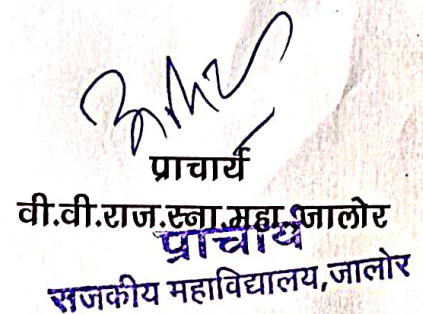 प्राचार्य
वी.वी.राज.स्ना.महा.जालोर
प्राचार्य
राजकीय महाविद्यालय,जालोर